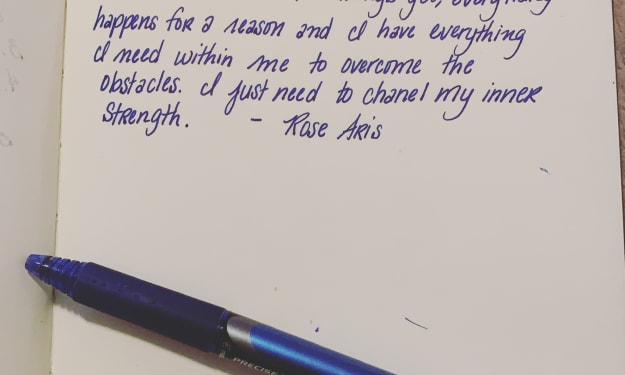 everything
happens for a reason and I have everything
I need within me to overcome the
obstacles. I just need to chanel my inner
strength. - Rose Aris
PRECISE